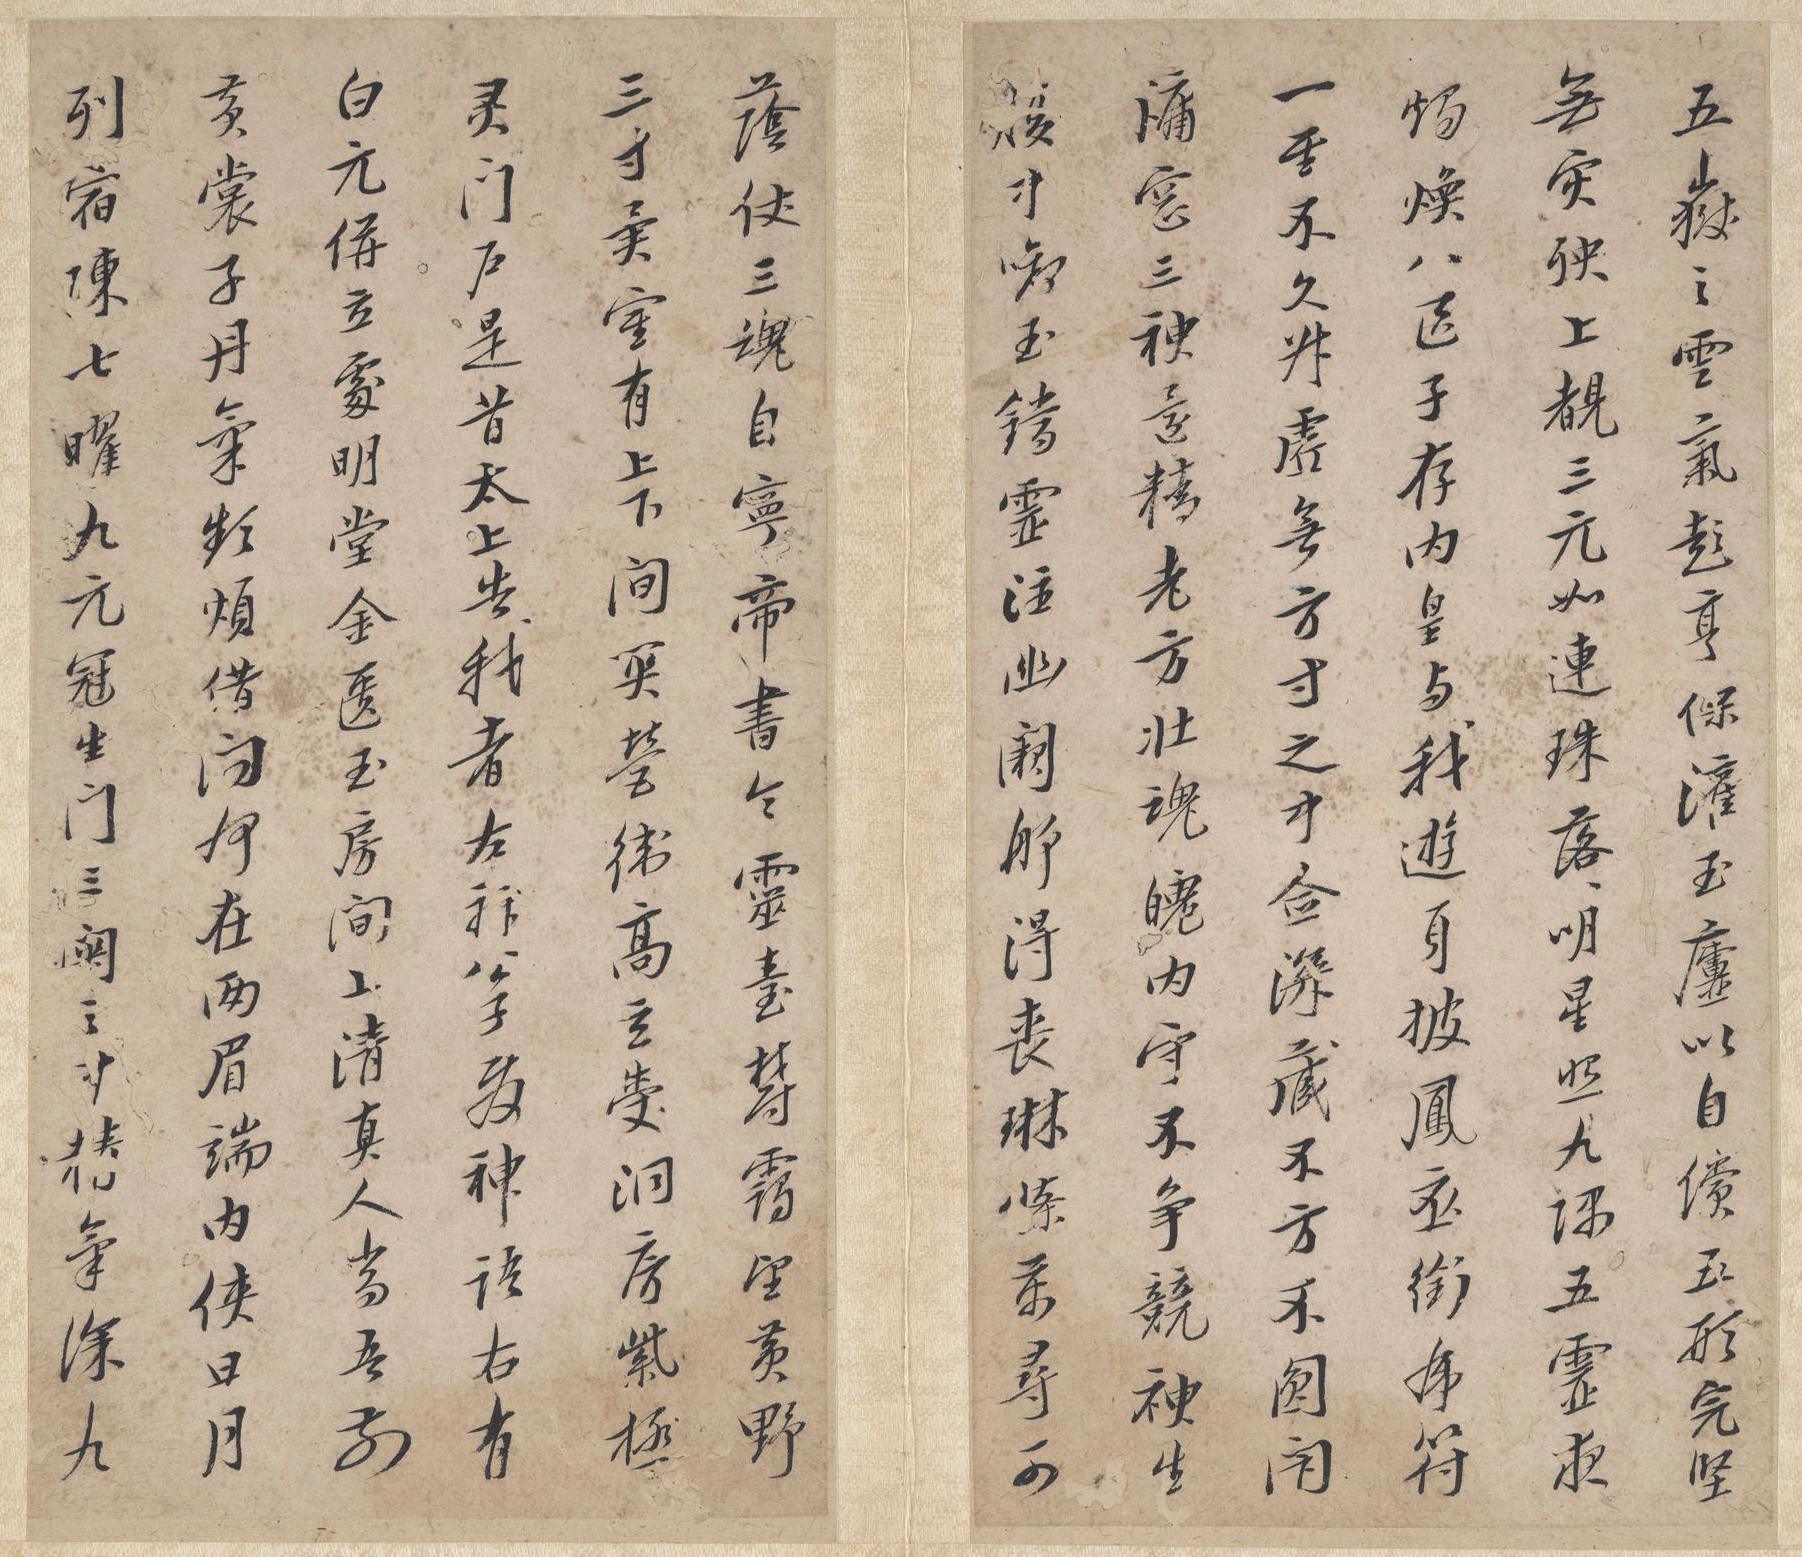 五嶽之雲氣彭亨保灌玉廬以自償五形完堅
無災殃上覩三元如連珠落〻明星照九隅五靈夜
燭煥八區子存內皇與我遊身披鳳衣銜虎符
一至不久昇虛無方寸之中念深藏不方不圓閉
牖窓三神還精老方壯魂魄內守不爭競神生
腹中銜玉鐺靈注幽闕那得喪琳條萬尋可
蔭仗三魂自寧帝書命靈臺鬱靄望黃野
三寸異室有上下間關營衛高玄受洞房紫極
灵門戶是昔太上告我者左神公子發神語右有
白元併立處明堂金匱玉房間上清真人當吾前
黃裳子丹氣頻煩借問何在兩眉端內俠日月
列宿陳七曜九元冠生門三關之中精氣深九